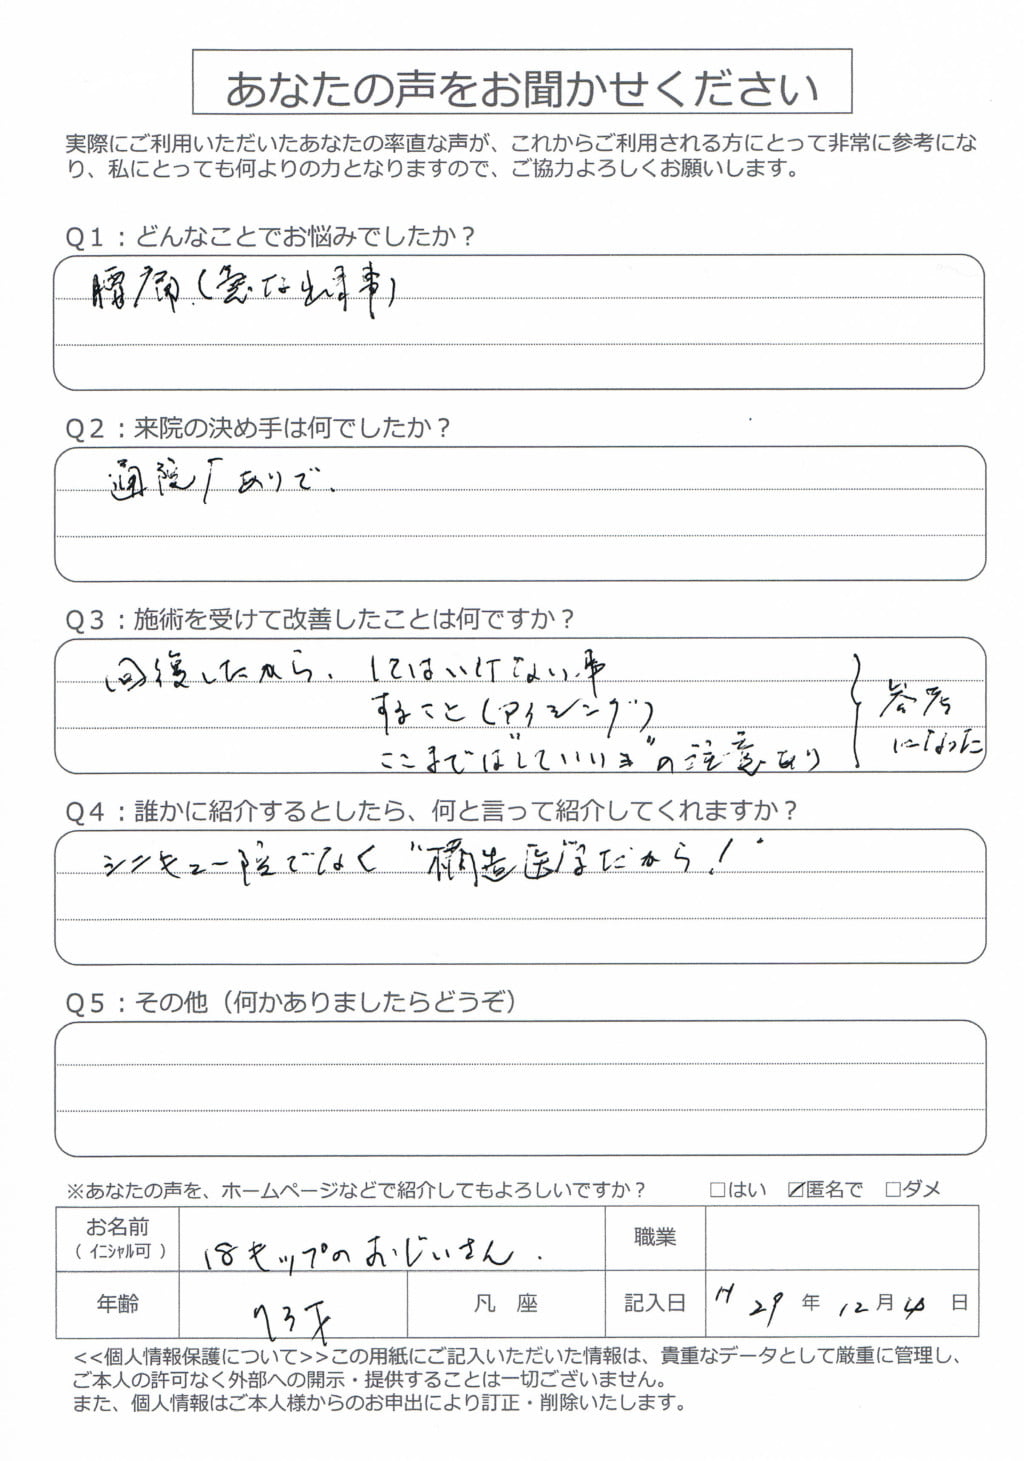 あなたの声をお聞かせください
実際にご利用いただいたあなたの率直な声が、これからご利用される方にとって非常に参考にな
り、私にとっても何よりの力となりますので、ご協力よろしくお願いします。
Q1：どんなことでお悩みでしたか？
腰痛（急な出来事）
Q2：来院の決め手は何でしたか？
通院 ありで.
Q3：施術を受けて改善したことは何ですか？
回復したから、してはいけない事
すること（アイシング）
ここまでは"していいよ"の注意あり
参考
になった
Q4：誰かに紹介するとしたら、何と言って紹介してくれますか？
シンキュー院でなく"構造医学だから！"
Q5：その他（何かありましたらどうぞ）
※あなたの声を、ホームページなどで紹介してもよろしいですか？ □はい ☑匿名で □ダメ
お名前
（ｲﾆｼｬﾙ可）
18キップのおじいさん.
職業
年齢
73才
凡 座
記入日
H29年 12月 4日
<<個人情報保護について>>この用紙にご記入いただいた情報は、貴重なデータとして厳重に管理し、
ご本人の許可なく外部への開示・提供することは一切ございません。
また、個人情報はご本人様からのお申出により訂正・削除いたします。